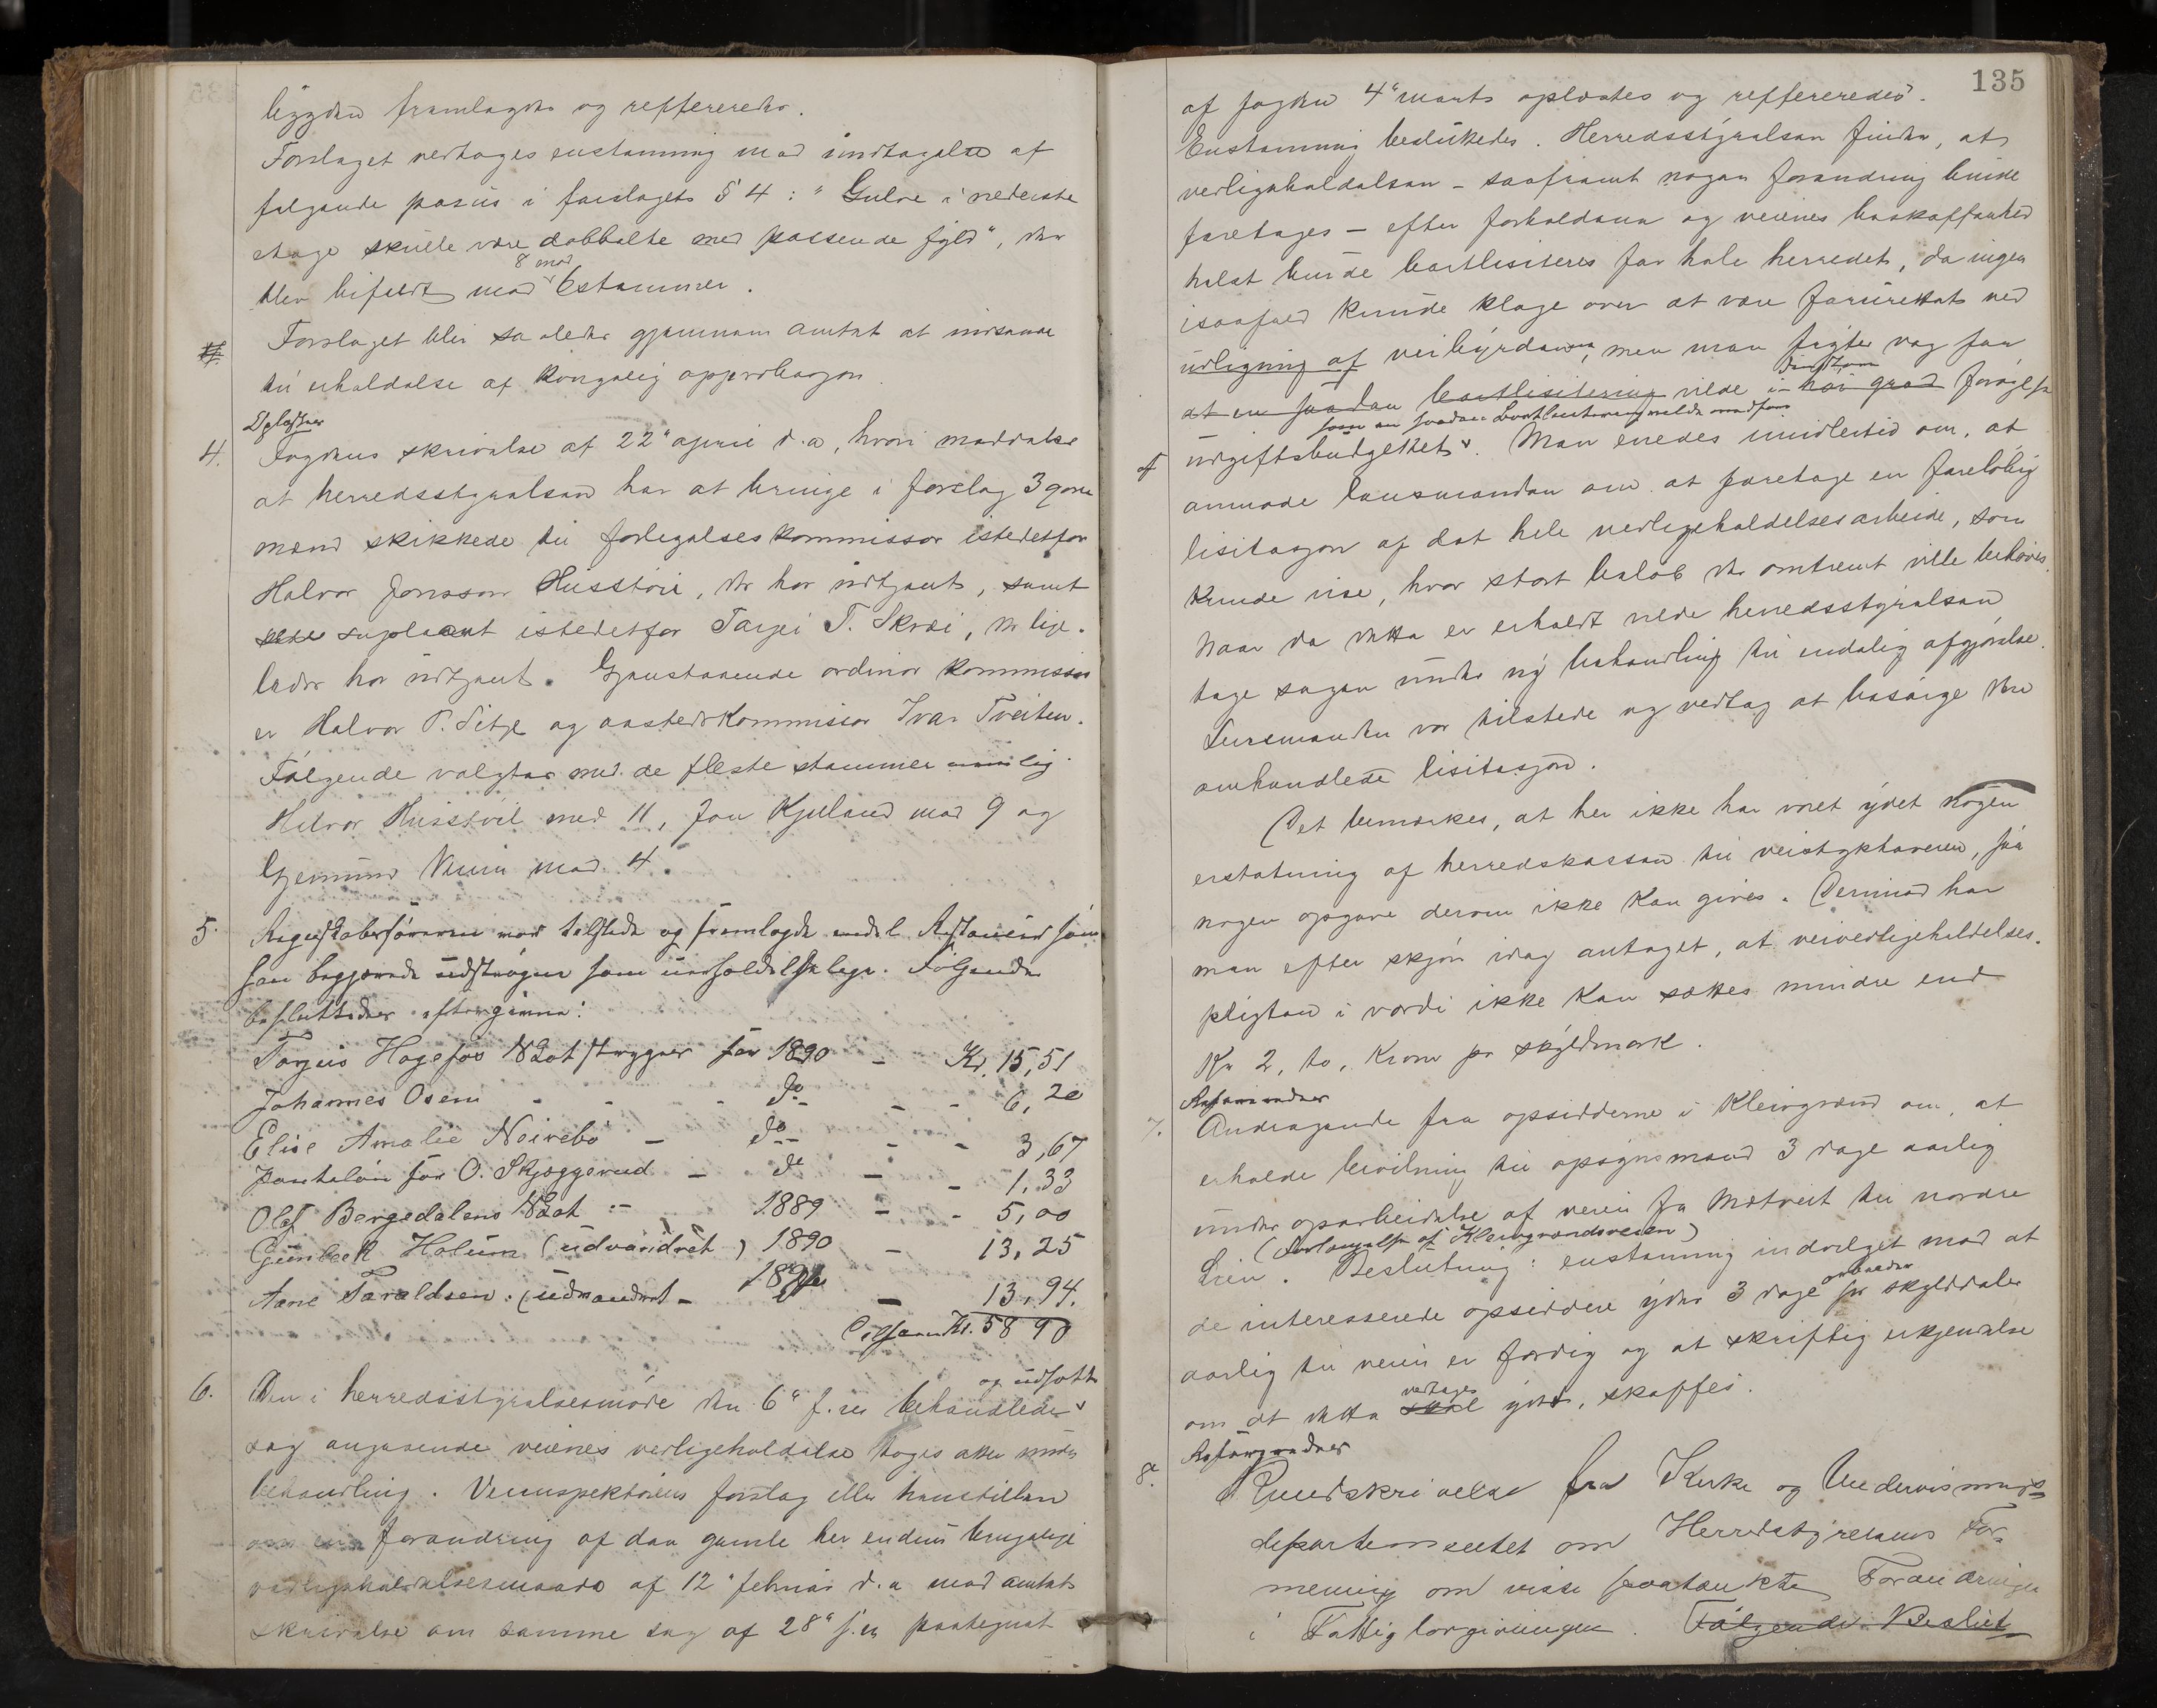 byggden framlagdes og reffereredes.
Forslaget vedtoges enstemmig med undtagelse af
følgende passus i forslagets § 4: "Gulve i nederste
etage skulle være dobbelte med passende fyld", der
8 mod
blev bifaldt med 6 stemmer.
Forslaget blir saaledes gjennem amtet at indsende
til erholdelse af kongelig approbasjon.
Oplæstes
4. Fogdens skrivelse af 22" april d.a, hvori meddeles
at herredsstyrelsen har at bringe i forslag 3 gove
mænd skikkede til forlegelseskommissær istedetfor
Halvor Jonsson Husstøil, der har udtjent, samt
suplaant istedetfor Tarjei T. Skrei, der lige-
ledes har udtjent. Gjenstaaende ordinær kommissær
er Halvor P. Sitje og aasteds kommissær Ivar Tveiten.
Følgende valgtes med de fleste stemmer nemlig
Halvor Husstøil med 11, Jon Kjeland med 9 og
Gjermund Vinin med 4.
5. Regnskabsføreren var tilstede og fremlagde endel Restancer som
han begjærede udstrøgne som uerholdelselige. Følgende
besluttedes eftergivne:
Torjus Hagefos N Lot stryges for 1890 - Kr. 15,51
Johannes Osen - - - do - - 6,20
Elise Amalie Neirebø - do - - 3,67
Pantelån for O. Skjeggerud - do - - 1,33
Olaf Bergedalens N Lot - 1889 - - 5,00
Gunbeck Holum (udvandret) 1890 - 13,25
Aane Taraldsen. (udvandret - 1890 - 13,94.
Tilsam Kr. 58 90
og udsatte
6. Den i herredsstyrelsesmøde den 6" f.m behandlede
sag angaaende veienes vedligeholdelse toges atter under
behandling. Veiinspektørens forslag eller henstillen
om en forandring af den gamle her endnu brugelige
vedligeholdelsesmaade af 12" februar d.a med amtets
skrivelse om samme sag af 28" s.m paategnet
135
af fogden 4" marts oplæstes og reffereredes.
Enstemmig besluttedes. Herredsstyrelsen finder, at
vedligeholdelsen - saafremt nogen forandring burde
foretages - efter forholdene og veienes beskaffenhed
helst burde bortlisiteres for hele herredet, da ingen
isaafald kunde klage over at være forurettet ved
udligning af veibyrderne, men man frygter dog for
den som
at en saadan bortlisitering vilde i høi grad forøgelse
som en saadan bortlisitering vilde medføre
udgiftsbudgettet. Man enedes imidlertid om, at
anmode lensmanden om at foretage en foreløbig
lisitasjon af det hele vedligeholdelsesarbeide, som
kunde vise, hvor stort beløb der omtrent ville behøves.
Naar da dette er erholdt vilde herredsstyrelsen
tage sagen under ny behandling til endelig afgjørelse.
Lensmanden var tilstede og vedtog at besørge den
omhandlede lisitasjon.
Det bemærkes, at her ikke har været ydet nogen
erstatning af herredskassen til veistykhaverne, saa
nogen opgave derom ikke kan gives. Derimod har
man efter skjøn idag antaget, at veivedligeholdelses-
pligten i værdi ikke kan sættes mindre end
Kr 2, to, Kroner pr skyldmark.
Refereredes
7. Andragende fra opsidderne i Kleivgrænd om, at
erholde bevilning til opsynsmand 3 dage aarlig
under oparbeidelse af veien fra Mætveit til nordre
(Forlængelse af Kleivgrændsveien)
Lien. Beslutning: enstemmig indvilget mod at
arbeider
de interesserede opsiddere yder 3 dage pr skylddaler
aarlig til veien er færdig og at skriftlig erkjendelse
vedtages
om at dette skal ydes, skaffes.
Refereredes
8. Rundskrivelse fra Kirke og Undervisnings-
departementet om Herredstyrelsens For-
mening om visse paatænkte Forandringer
i Fattiglovgivningen. Følgende Beslut